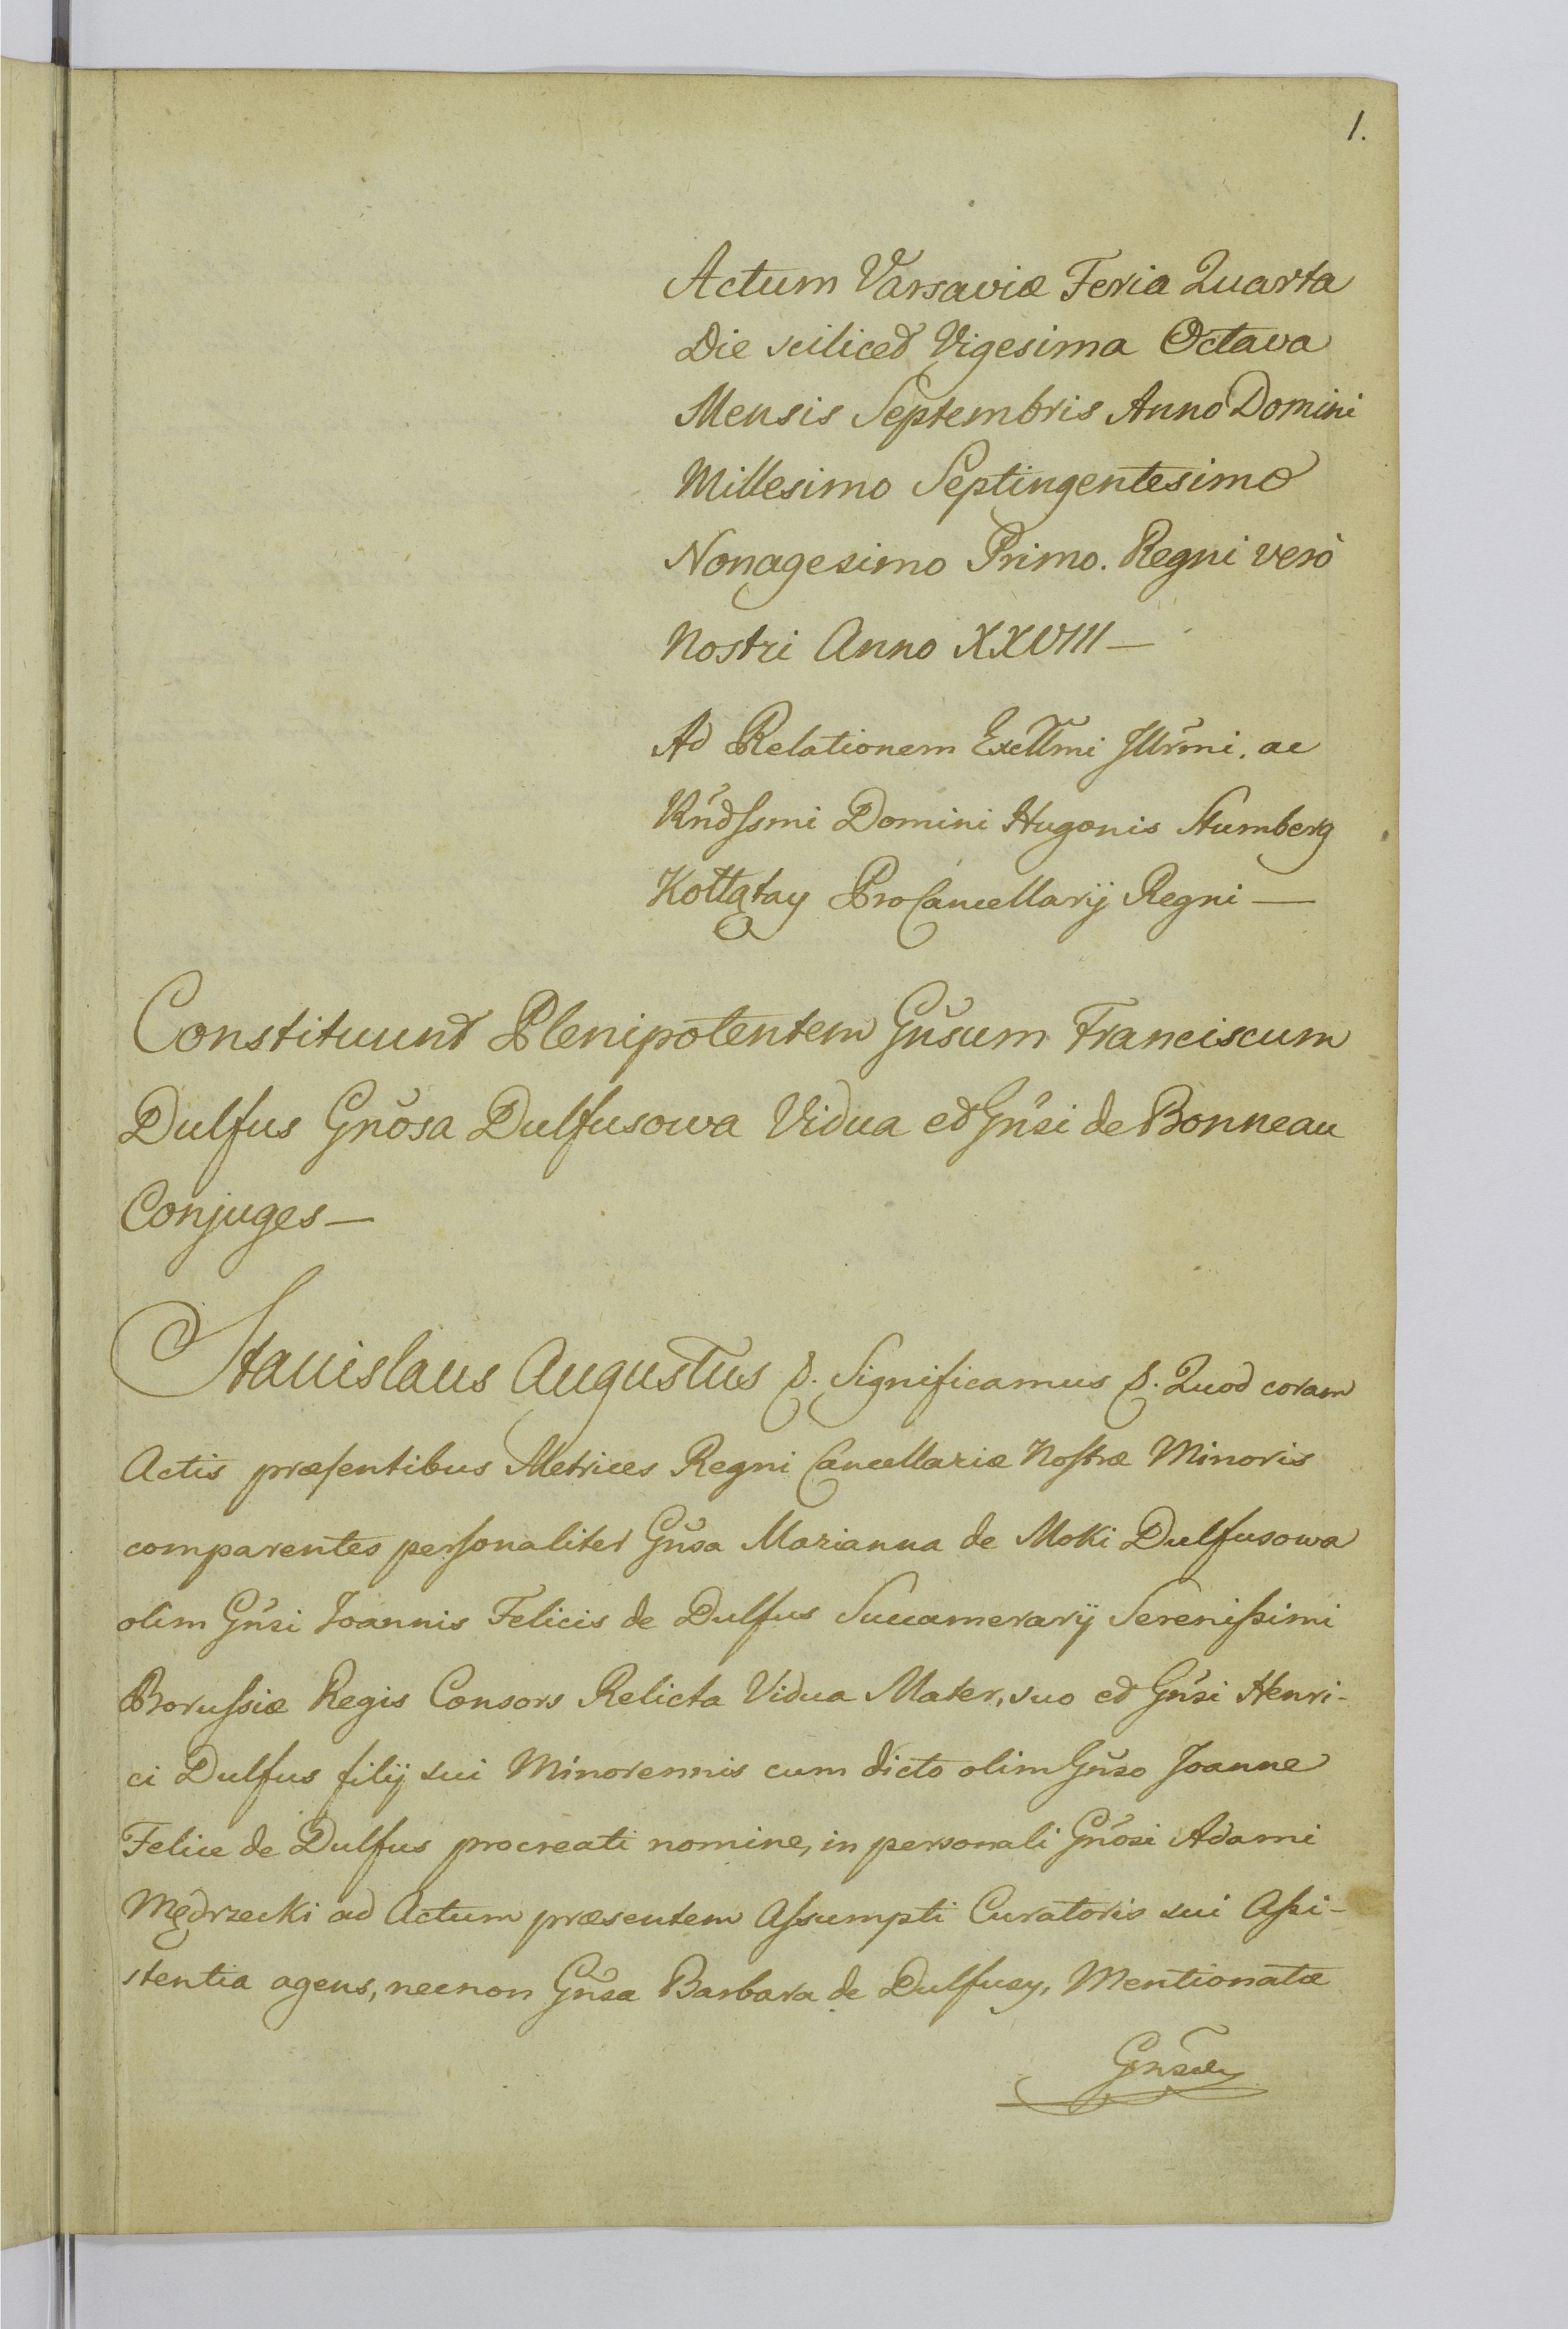 1.
Actum Varsaviæ Feria Quarta
Die scilicet Vigesima Octava
Mensis Septembris Anno Domini
Millesimo Septingentesimo
Nonagesimo Primo. Regni verò
Nostri Anno XXVIII —
Ad Relationem Excllm̃i Jllr̃mi. ac
Rñdſsmi Domini Hugonis Stumberg
Kołłątay ProCancellarij Regni —
Constituunt Plenipotentem Gñsum Franciscum
Dulfus Gnõsa Dulfusowa Vidua et Gñsi de Bonneau
Conjuges —
Stanislaus Augustus &. Significamus &. Quod coram
Actis præſentibus Metrices Regni Cancellariæ Noſtræ Minoris
comparentes perſonaliter Gñsa Marianna de Moki Dulfusowa
olim Gñsi Joannis Felicis de Dulfus Succamerarij Sereniſsimi
Boruſsiæ Regis Consors Relicta Vidua Mater, suo et Gñsi Henri-
ci Dulfus filij sui Minorennis cum dicto olim Gñso Joanne
Felice de Dulfus procreati nomine, in personali Gnõsi Adami
Mędrzecki ad Actum præsentem Aſsumpti Curatoris sui Aſsi-
stentia agens, necnon Gñsa Barbara de Dulfusy, Mentionatæ
Gñsæ